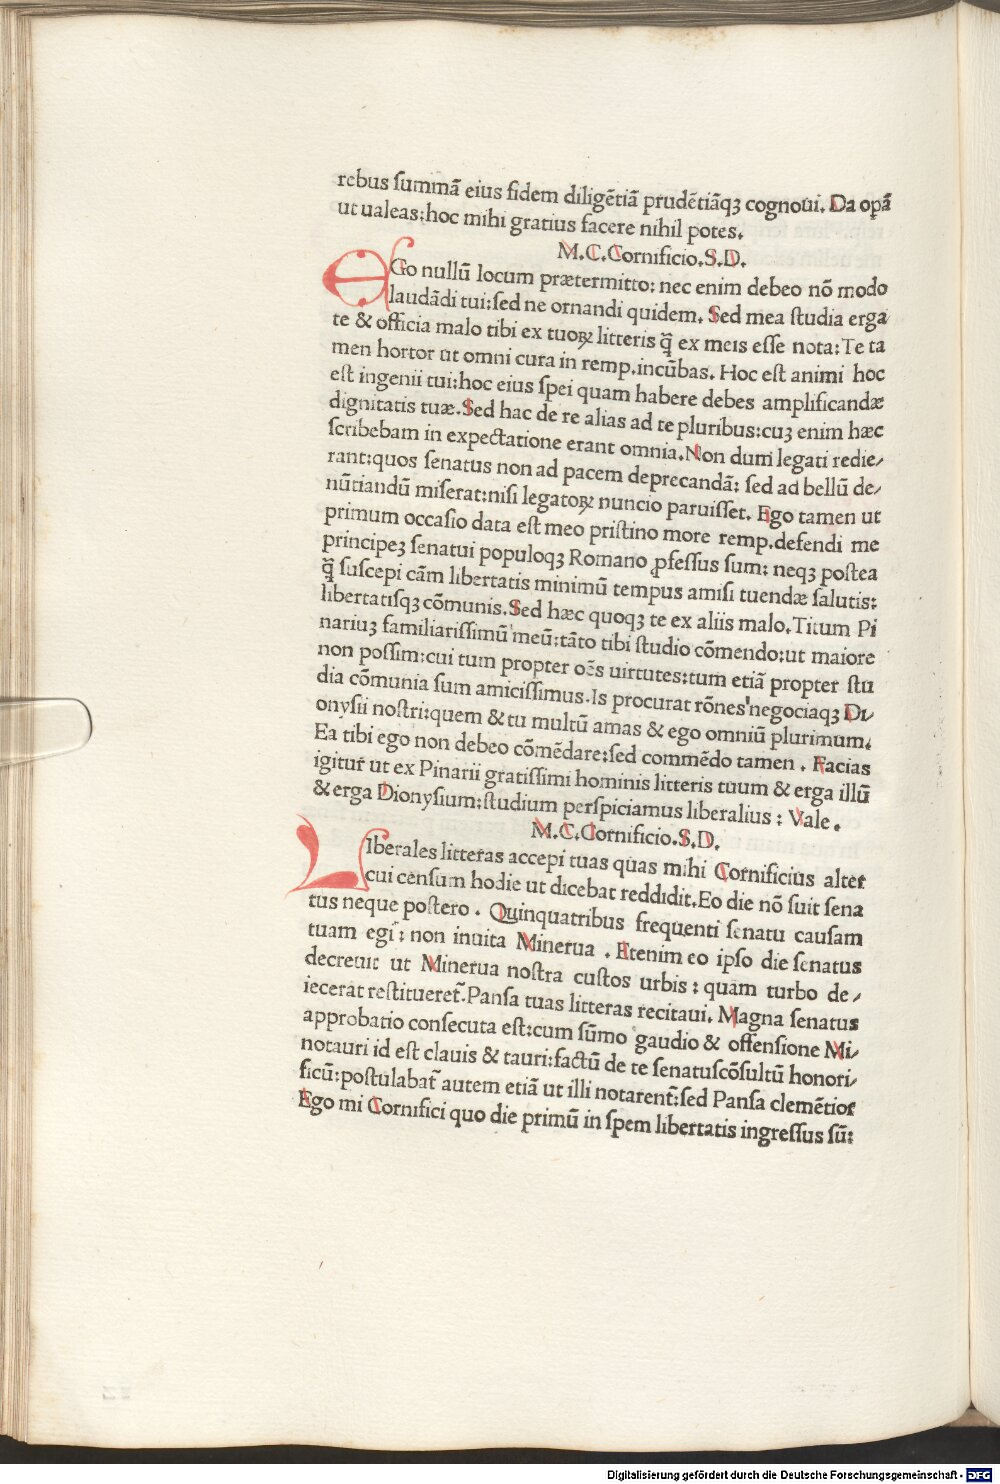 rebus summā eius fidem diligētiā prudētiāqꝫ cognoui. Da opā
ut ualeas: hoc mihi gratius facere nihil potes.
M.C.Cornificio.S.D.
EGo nullū locum prætermitto: nec enim debeo nō modo
laudādi tui: sed ne ornandi quidem. Sed mea studia erga
te & officia malo tibi ex tuoꝝ litteris q̄ ex meis esse nota: Te ta
men hortor ut omni cura in remp.incūbas. Hoc est animi hoc
est ingenii tui: hoc eius spei quam habere debes amplificandæ
dignitatis tuæ. Sed hac de re alias ad te pluribus: cuꝫ enim hæc
scribebam in expectatione erant omnia. Non dum legati redie/
rant: quos senatus non ad pacem deprecandā: sed ad bellū de/
nūtiandū miserat: nisi legatoꝝ nuncio paruisset. Ego tamen ut
primum occasio data est meo pristino more remp.defendi me
principeꝫ senatui populoqꝫ Romano ꝓfessus sum: neqꝫ postea
q̄ suscepi cām libertatis minimū tempus amisi tuendæ salutis:
libertatisqꝫ cōmunis. Sed hæc quoqꝫ te ex aliis malo. Titum Pi
nariuꝫ familiarissimū meū: tāto tibi studio cōmendo: ut maiore
non possim: cui tum propter oēs uirtutes: tum etiā propter stu
dia cōmunia sum amicissimus. Is procurat rōnes negociaqꝫ Di/
onysii nostri: quem & tu multū amas & ego omniū plurimum.
Ea tibi ego non debeo cōmēdare: sed commēdo tamen . Facias
igitur̄ ut ex Pinarii gratissimi hominis litteris tuum & erga illū
& erga Dionysium: studium perspiciamus liberalius : Vale.
M.C.Cornificio.S.D.
LIberales litteras accepi tuas quas mihi Cornificius alter
cui censum hodie ut dicebat reddidit. Eo die nō fuit sena
tus neque postero . Quinquatribus frequenti senatu causam
tuam egi: non inuita Minerua . Etenim eo ipso die senatus
decreuit ut Minerua nostra custos urbis : quam turbo de/
iecerat restitueret̄. Pansa tuas litteras recitaui. Magna senatus
approbatio consecuta est: cum sūmo gaudio & offensione Mi/
notauri id est clauis & tauri: factū de te senatuscōsultū honori/
ficū: postulabat̄ autem etiā ut illi notarent̄: sed Pansa clemētior
Ego mi Cornifici quo die primū in spem libertatis ingressus sū:
Digitalisierung gefördert durch die Deutsche Forschungsgemeinschaft - DFG